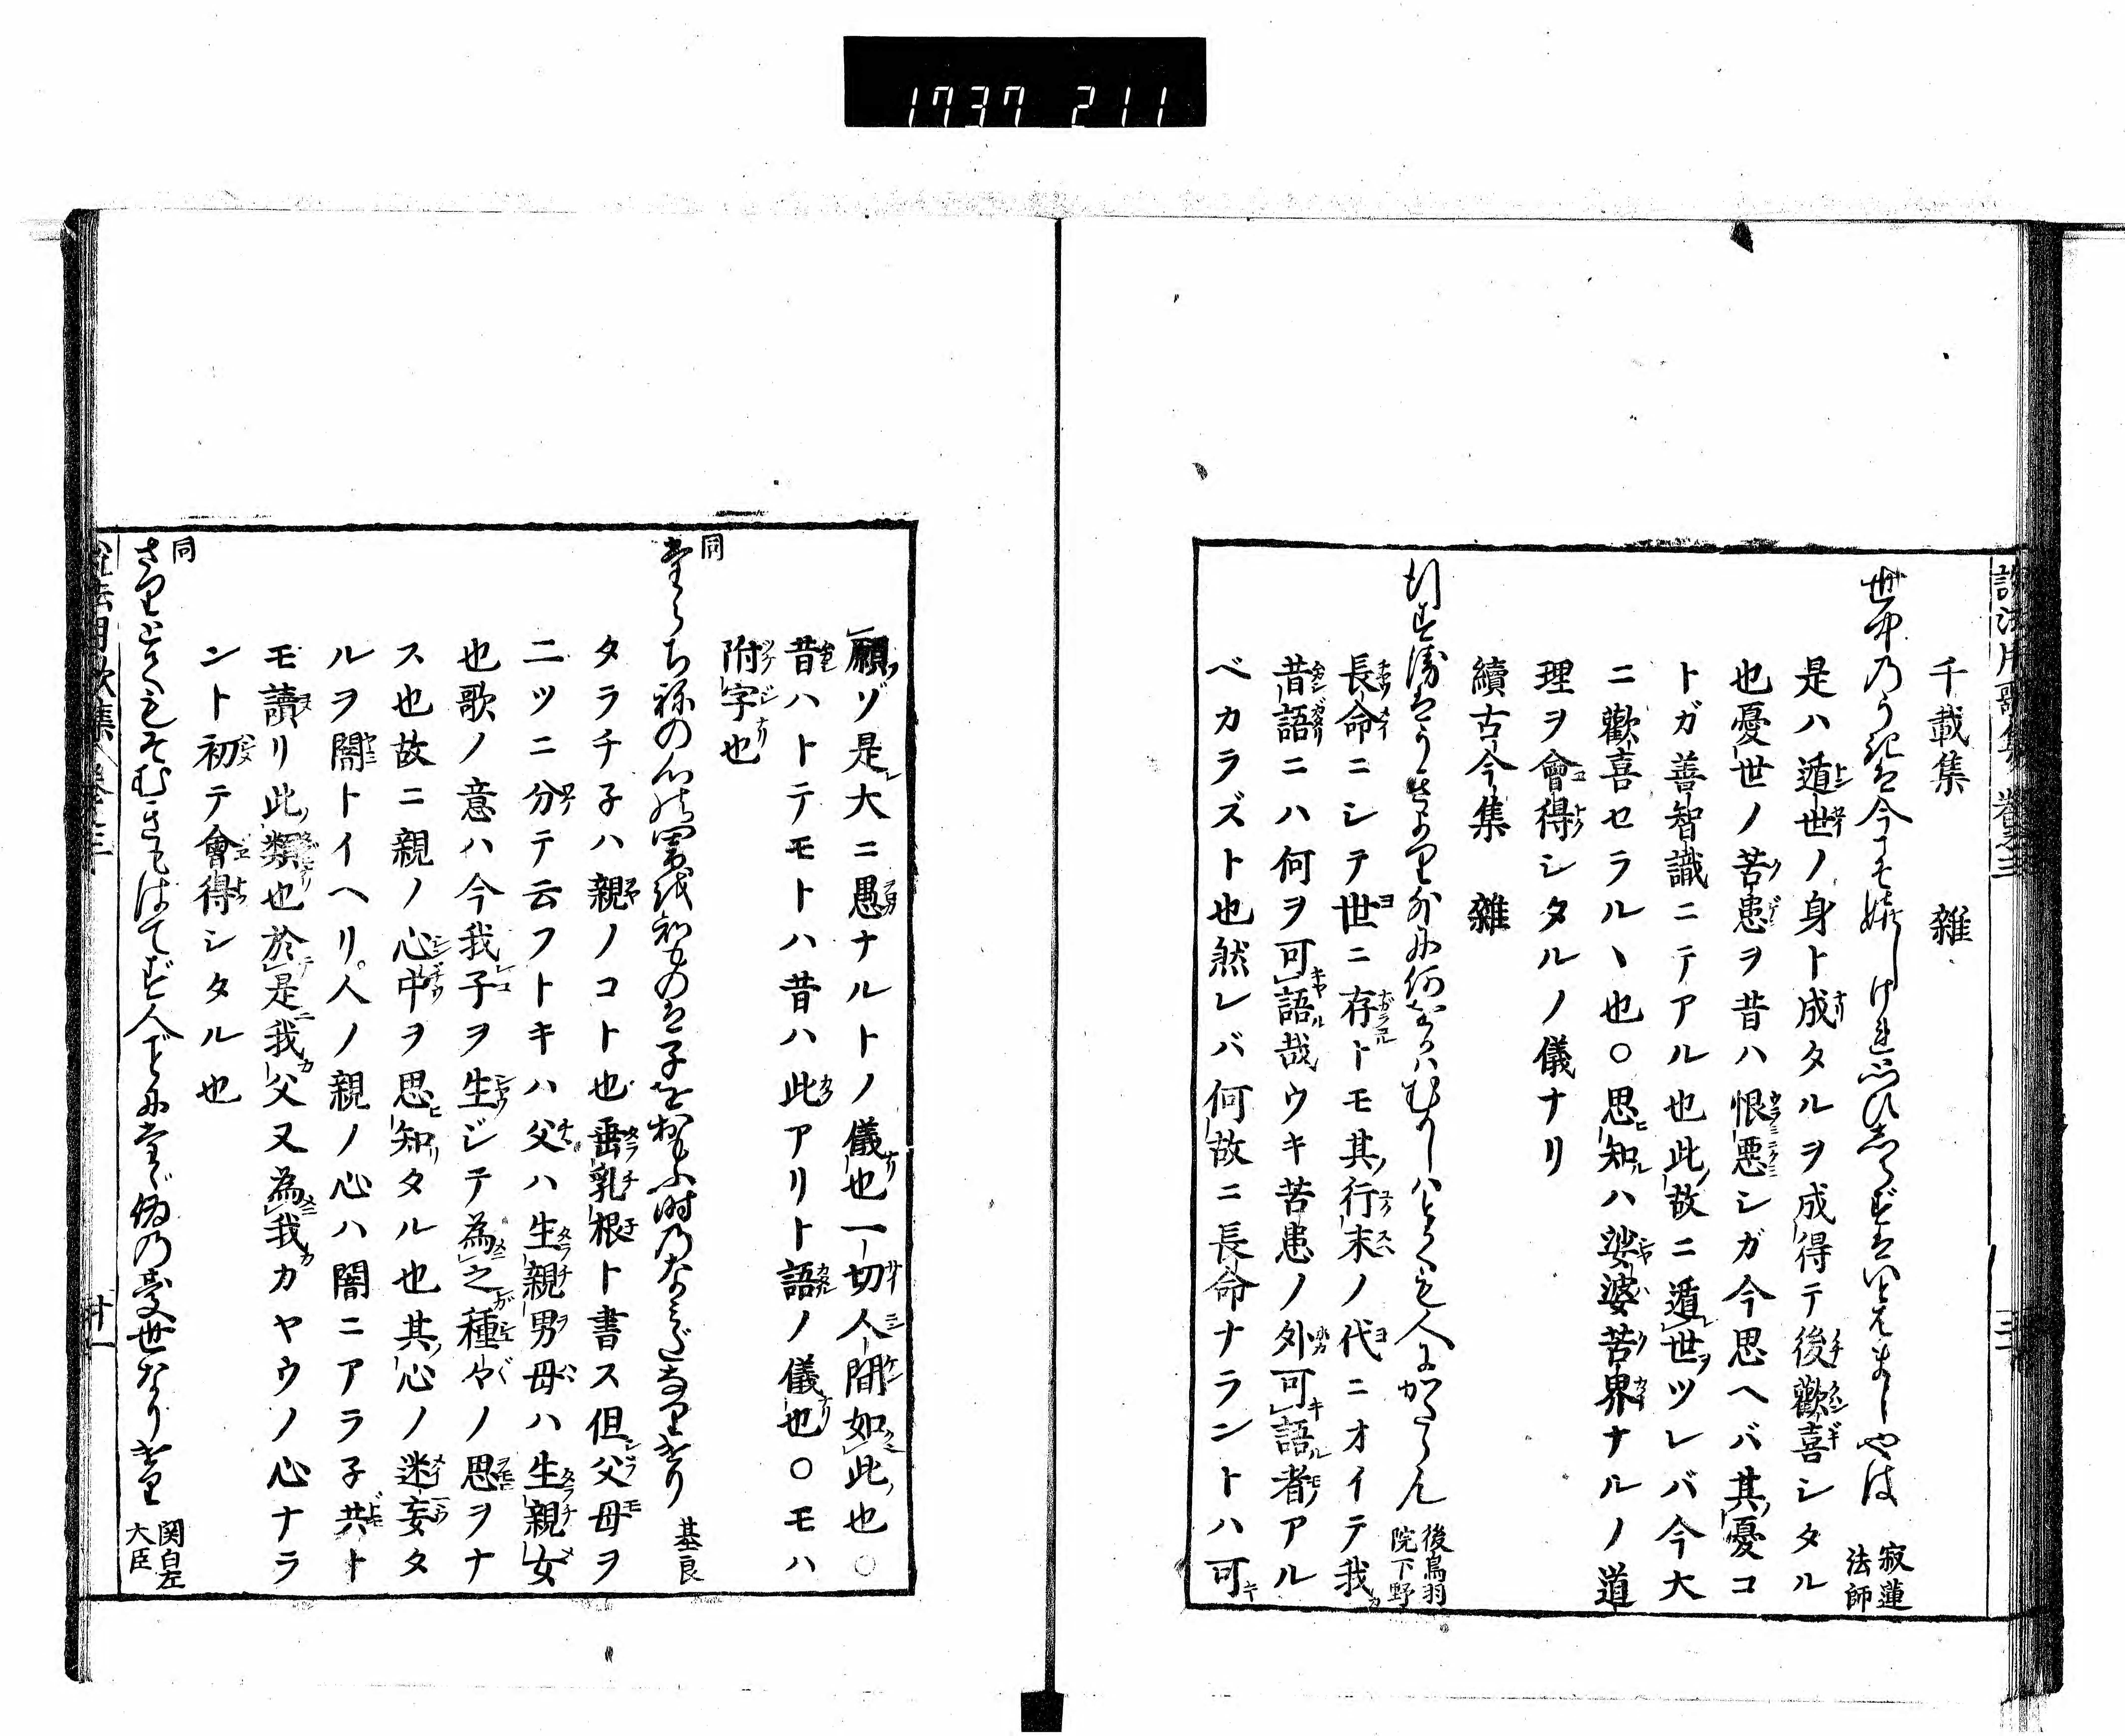 1737 211
千載集 雜
世中のうきは今こそ嬉しけれ思ひしらずはいとはましやは 寂蓮法師
是ハ遁世ノ身ト成タルヲ成得テ後歡喜シタル
也憂世ノ苦患ヲ昔ハ恨惡シガ今思ヘバ其憂コ
トガ善智識ニテアル也此故ニ遁世ヲツレバ今大
ニ歡喜セラルヽ也〇思知ハ娑婆苦界ナルノ道
理ヲ會得シタルノ儀ナリ
續古今集 雜
行すゑはうきより外に何をかはむかしはとても人にかたらん 後鳥羽院下野
長命ニシテ世ニ存トモ其行末ノ代ニオイテ我
昔語ニハ何ヲ可語哉ウキ苦患ノ外可語者アル
ベカラズト也然レバ何故ニ長命ナラントハ可
願ゾ是大ニ愚ナルトノ儀也一切人間如此也〇
昔ハトテモトハ昔ハ此アリト語ノ儀也〇モハ
附字也
同
たらちねの心の闇を知ものは子をおもふ時のなみだなりけり 基良
タラチ子ハ親ノコト也垂乳根ト書ス但父母ヲ
二ツニ分テ云フトキハ父ハ生親男母ハ生親女
也歌ノ意ハ今我子ヲ生ジテ為之種々ノ思ヲナ
ス也故ニ親ノ心中ヲ思知タル也其心ノ迷妄タ
ルヲ闇トイヘリ人ノ親ノ心ハ闇ニアラ子共ト
モ讀リ此類也於是我父又為我カヤウノ心ナラ
ント初テ會得シタル也
同
さりともそむきもはてず人ごとにたゞ偽の憂世なりけり 関白左大臣
十一